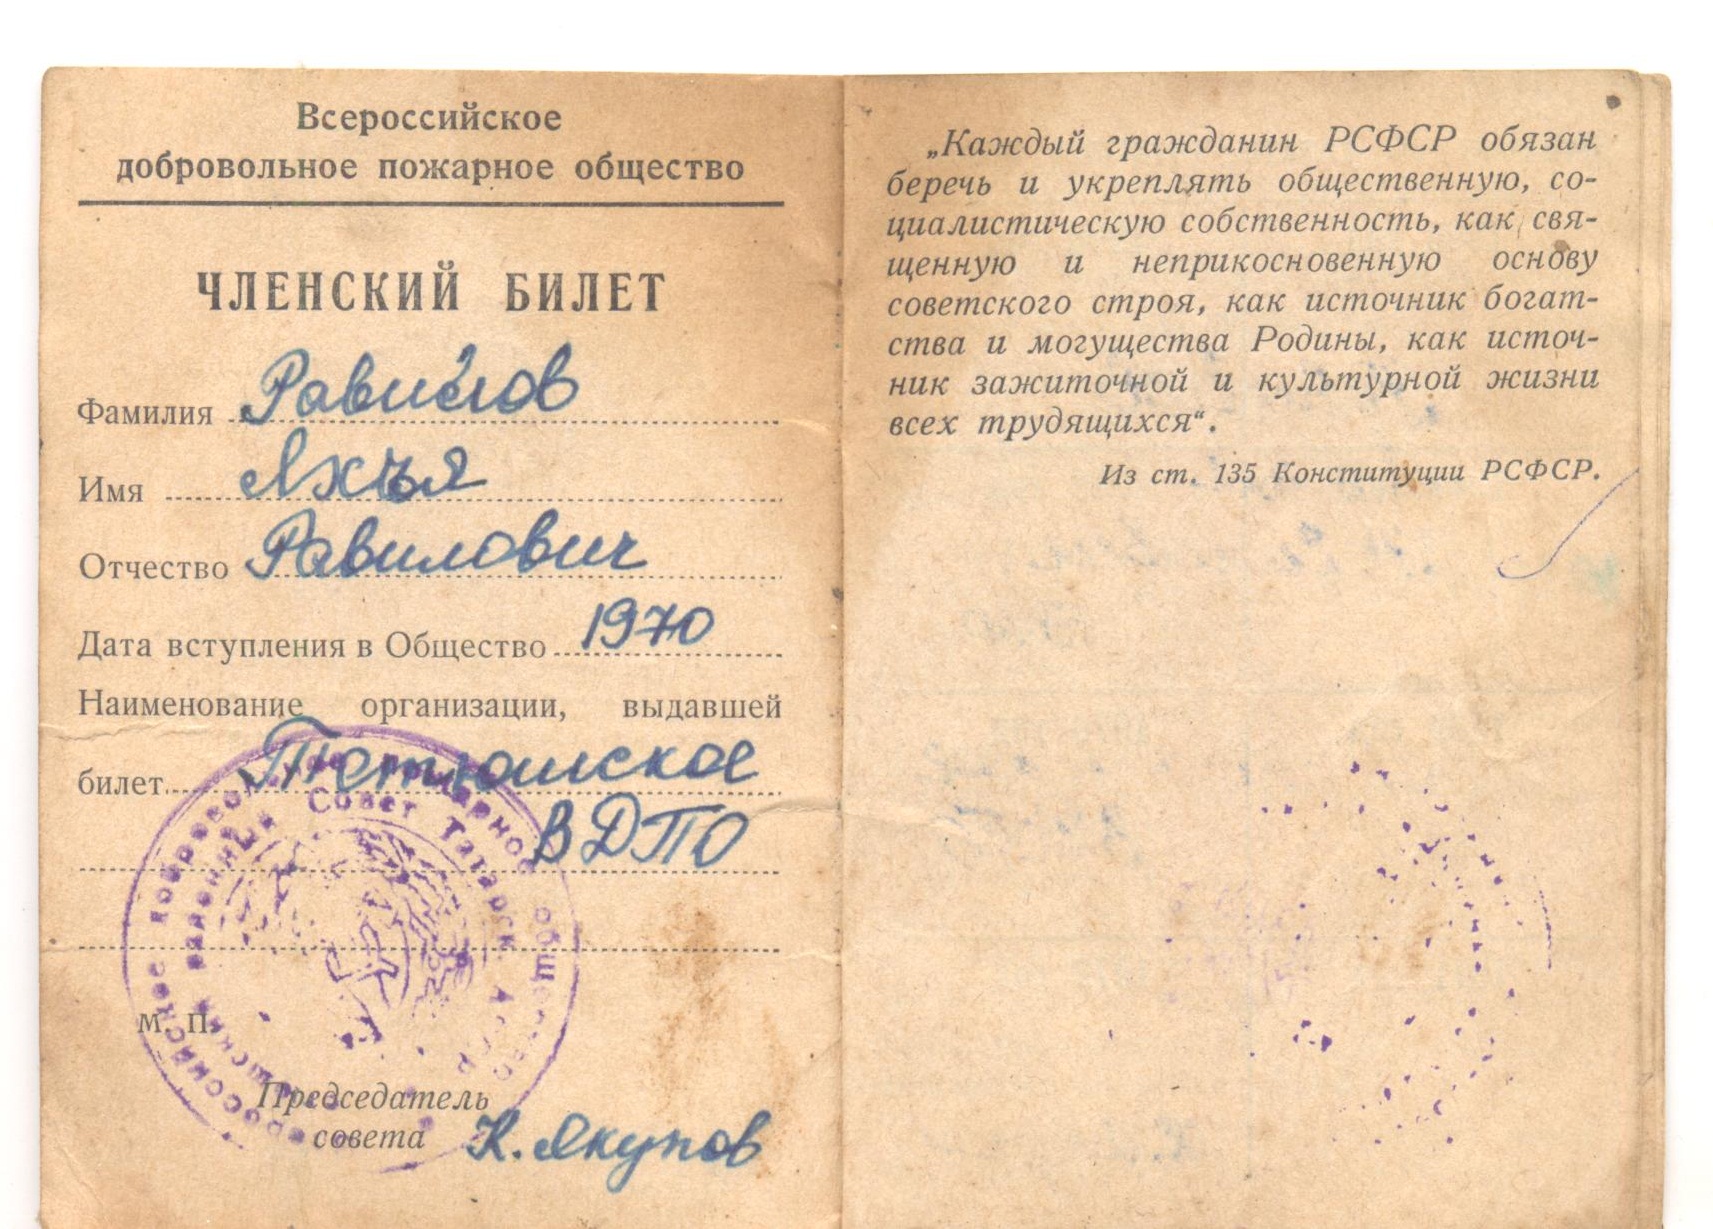 Всероссийское
добровольное пожарное общество
ЧЛЕНСКИЙ БИЛЕТ
Фамилия Равилов
Имя Яхъя
Отчество Равилович
Дата вступления в Общество 1970
Наименование организации, выдавшей
билет Тетюшское
ВДПО
М. П.
Председатель
совета К. Якупов
Всероссийское добровольное пожарное общество
Совет Татарск АССР
„Каждый гражданин РСФСР обязан
беречь и укреплять общественную, со-
циалистическую собственность, как свя-
щенную и неприкосновенную основу
советского строя, как источник богат-
ства и могущества Родины, как источ-
ник зажиточной и культурной жизни
всех трудящихся“.
Из ст. 135 Конституции РСФСР.